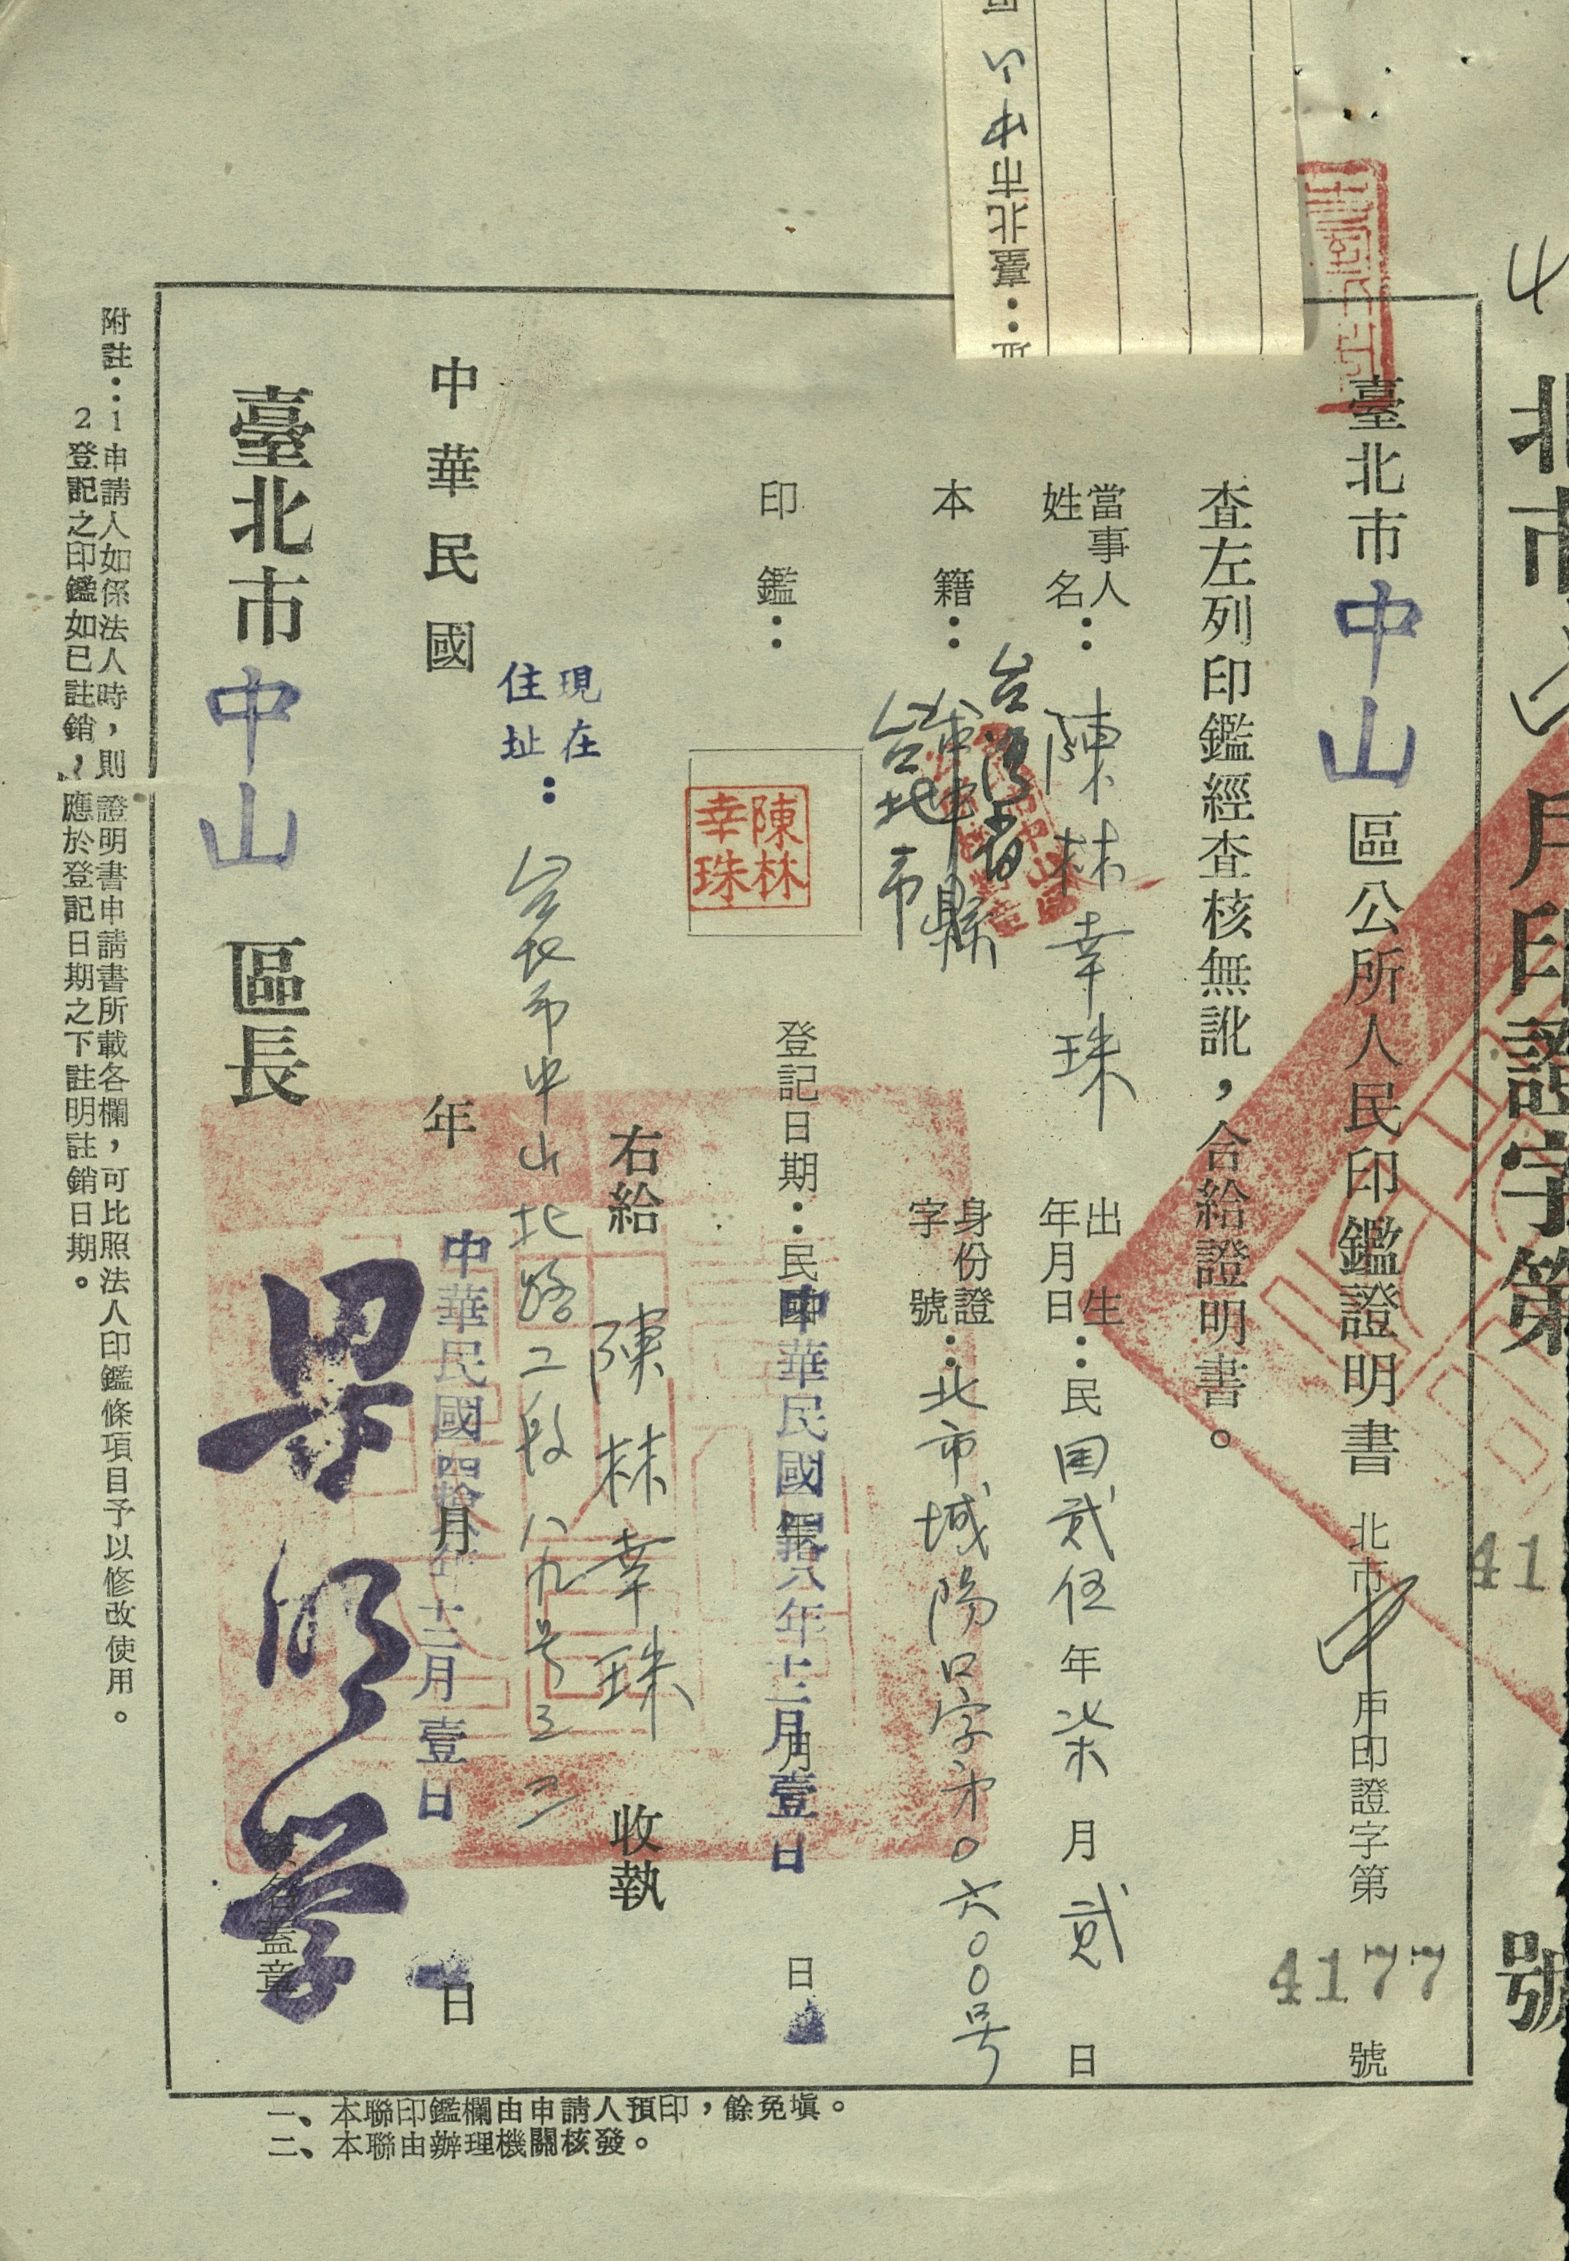 北市
戶印證字第
號
41
臺北市中山區公所人民印鑑證明書
北市中戶印證字第4177號
查左列印鑑經查核無訛，合給證明書。
當事人姓名：陳林幸珠
出生年月日：民国貳伍年柒月貳日
本籍：台灣省
台北市
縣
身份證字號：北市城陽口字第0六00号
印鑑：
陳林幸珠
登記日期：民國 年 月 日
中華民國肆拾八年十二月壹日
右給 陳林幸珠 收執
現在住址：台北市中山北路二段八九号之二
中華民國 年 月 日
中華民國四拾八年十二月壹日
臺北市中山區長
簽名蓋章
附註：1 申請人如係法人時，則證明書申請書所載各欄，可比照法人印鑑條項目予以修改使用。
2 登記之印鑑如已註銷，應於登記日期之下註明註銷日期。
一、本聯印鑑欄由申請人預印，餘免塡。
二、本聯由辦理機關核發。
臺北市中